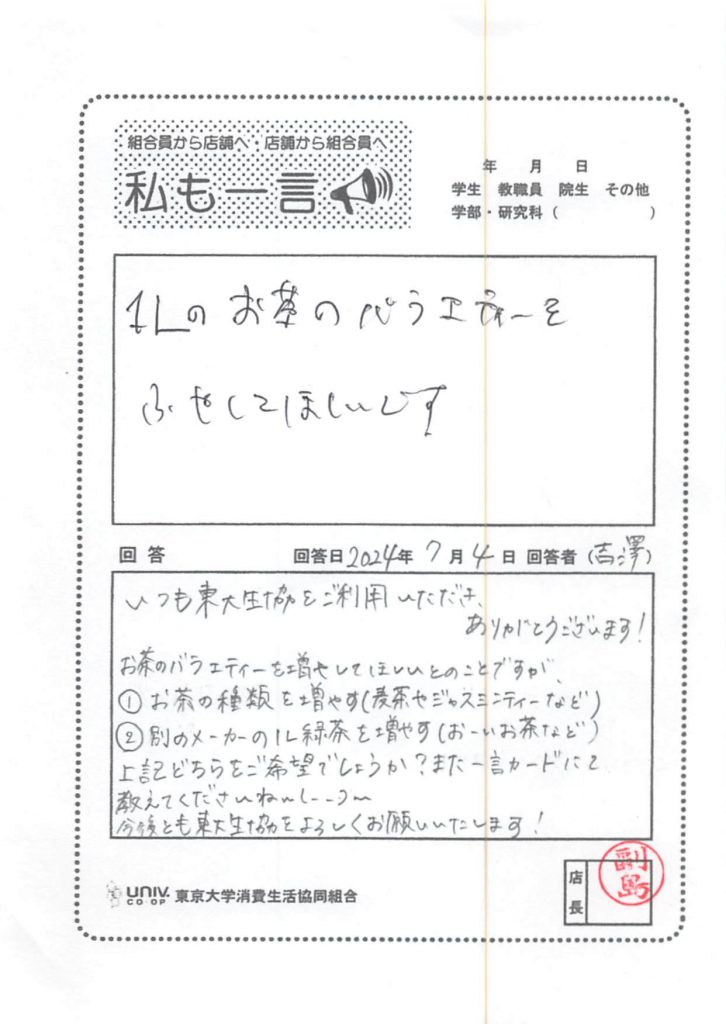 組合員から店舗へ・店舗から組合員へ
私も一言
年 月 日
学生 教職員 院生 その他
学部・研究科（ ）
1Lのお茶のバラエティーを
ふやしてほしいです
回答 回答日2024年7月4日 回答者（吉澤）
いつも東大生協をご利用いただき、
ありがとうございます！
お茶のバラエティーを増やしてほしいとのことですが、
①お茶の種類を増やす(麦茶やジャスミンティーなど)
②別のメーカーの1L緑茶を増やす(おーいお茶など)
上記どちらをご希望でしょうか？また一言カードにて
教えてくださいね
今後とも東大生協をよろしくお願いいたします！
UNIV. CO-OP 東京大学消費生活協同組合
店長
副島